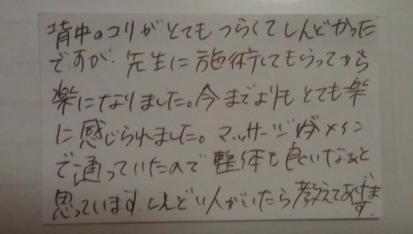 背中のコリがとてもつらくてしんどかった
ですが、先生に施術してもらってから
楽になりました。今までよりもとても楽
に感じられました。マッサージがメイン
で通っていたので整体も良いなぁと
思っています。しんどい人がいたら教えてあげます。